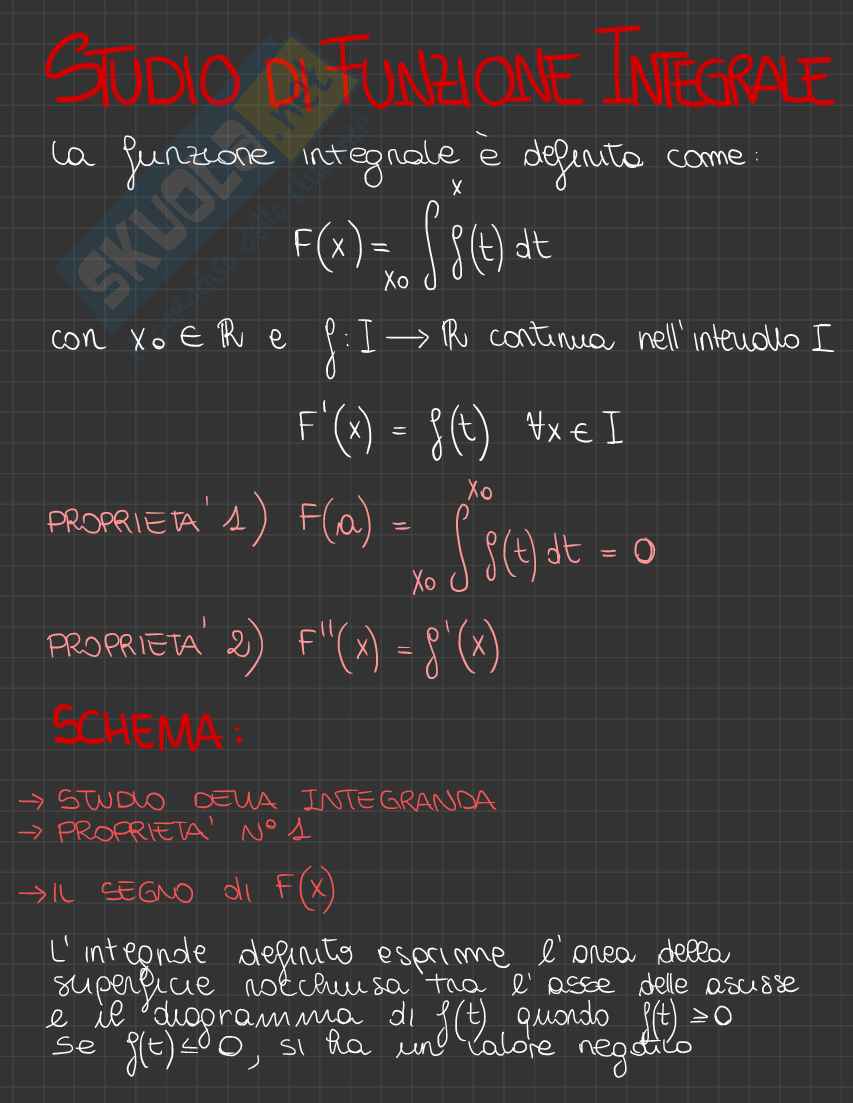 STUDIO DI FUNZIONE INTEGRALE
SKUOLA.net
La funzione integrale è definita come:
F(x) = ∫_{x₀}^{x} f(t) dt
con x₀ ∈ ℝ e f: I → ℝ continua nell'intervallo I
F'(x) = f(t) ∀x ∈ I
PROPRIETA' 1) F(a) = ∫_{x₀}^{x₀} f(t) dt = 0
PROPRIETA' 2) F''(x) = f'(x)
SCHEMA:
→ STUDIO DELLA INTEGRANDA
→ PROPRIETA' N° 1
→ IL SEGNO di F(x)
L'integrale definito esprime l'area della
superficie racchiusa tra l'asse delle ascisse
e il diagramma di f(t) quando f(t) ≥ 0
Se f(t) ≤ 0, si ha un valore negativo